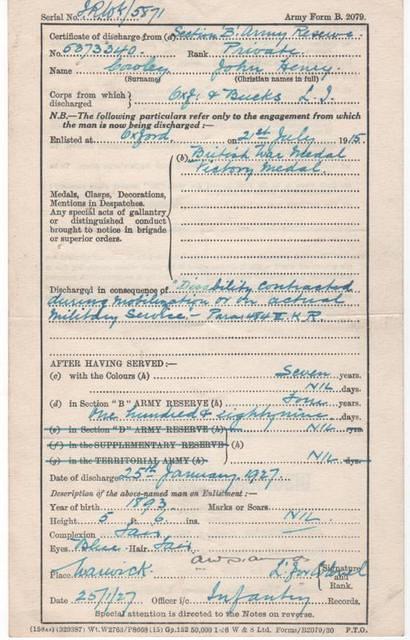 Serial No. Army Form B. 2079.
Certificate of discharge from (a) Section 'B' Army Reserve
No. 5373340. Rank Private
Name Cooley John Henry
(Surname) (Christian names in full)
Corps from which discharged } Oxf. & Bucks L.I.
N.B.—The following particulars refer only to the engagement from which
the man is now being discharged :—
Enlisted at Oxford, on 21st July 1915
(b) British War Medal
Victory Medal.
Medals, Clasps, Decorations,
Mentions in Despatches.
Any special acts of gallantry
or distinguished conduct
brought to notice in brigade
or superior orders.
Discharged in consequence of "Disability contracted
during mobilization or on actual
Military Service" - Para K R
AFTER HAVING SERVED :—
(c) with the Colours (h) Seven years.
NIL days.
(d) in Section "B" ARMY RESERVE (h) Four years.
One hundred & eighty nine days.
(e) in Section "D" ARMY RESERVE (h) NIL yrs.
(f) in the SUPPLEMENTARY RESERVE } (h)
(g) in the TERRITORIAL ARMY (h) NIL dys.
Date of discharge 25th January 1927
Description of the above-named man on Enlistment :—
Year of birth 1893 Marks or Scars
Height 5 ft. 6 ins. NIL
Complexion Fair
Eyes Blue Hair Fair
Place Warwick. Lt for Colonel Signature and Rank.
Date 25/1/27 Officer i/c Infantry Records.
Special attention is directed to the Notes on reverse.
(15822) (329387) Wt. W2763/P8668 (15) Gp.152 50,000 1-26 W & S Ltd. Forms/B2079/30 P.T.O.